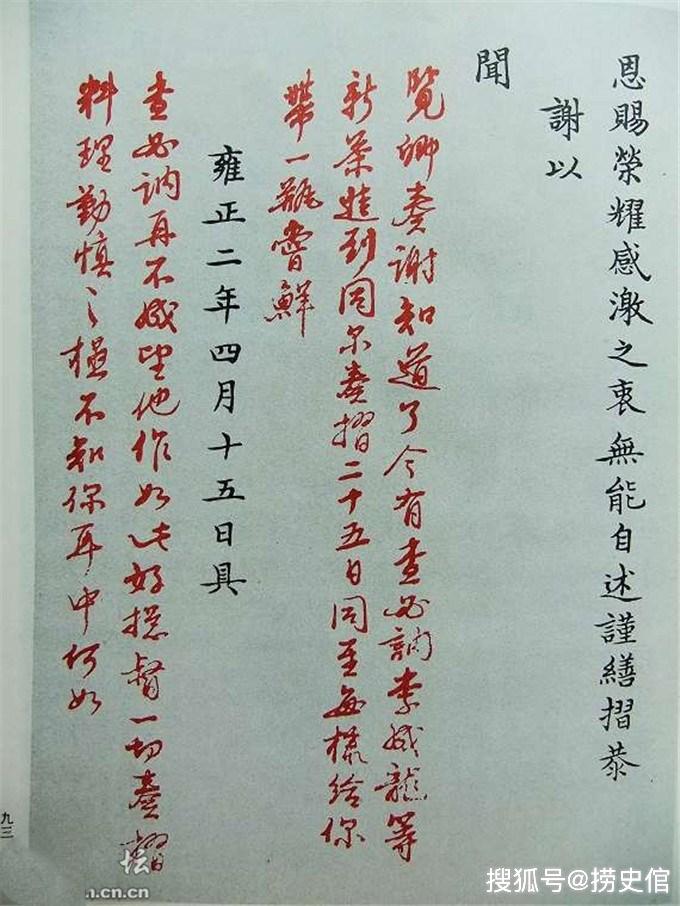 恩賜榮耀感激之衷無能自述謹繕摺恭
謝以
聞
覽卿奏謝知道了今有查必訥李成龍等
新茶進到同尔奏摺二十五日同至每樣給你
帶一瓶嘗鮮
雍正二年四月十五日具
查必訥再不成望他作如此好總督一切奏摺
料理勤慎之極不知你耳中何如
九三
坛
n.cn.cn
搜狐号@捞史馆